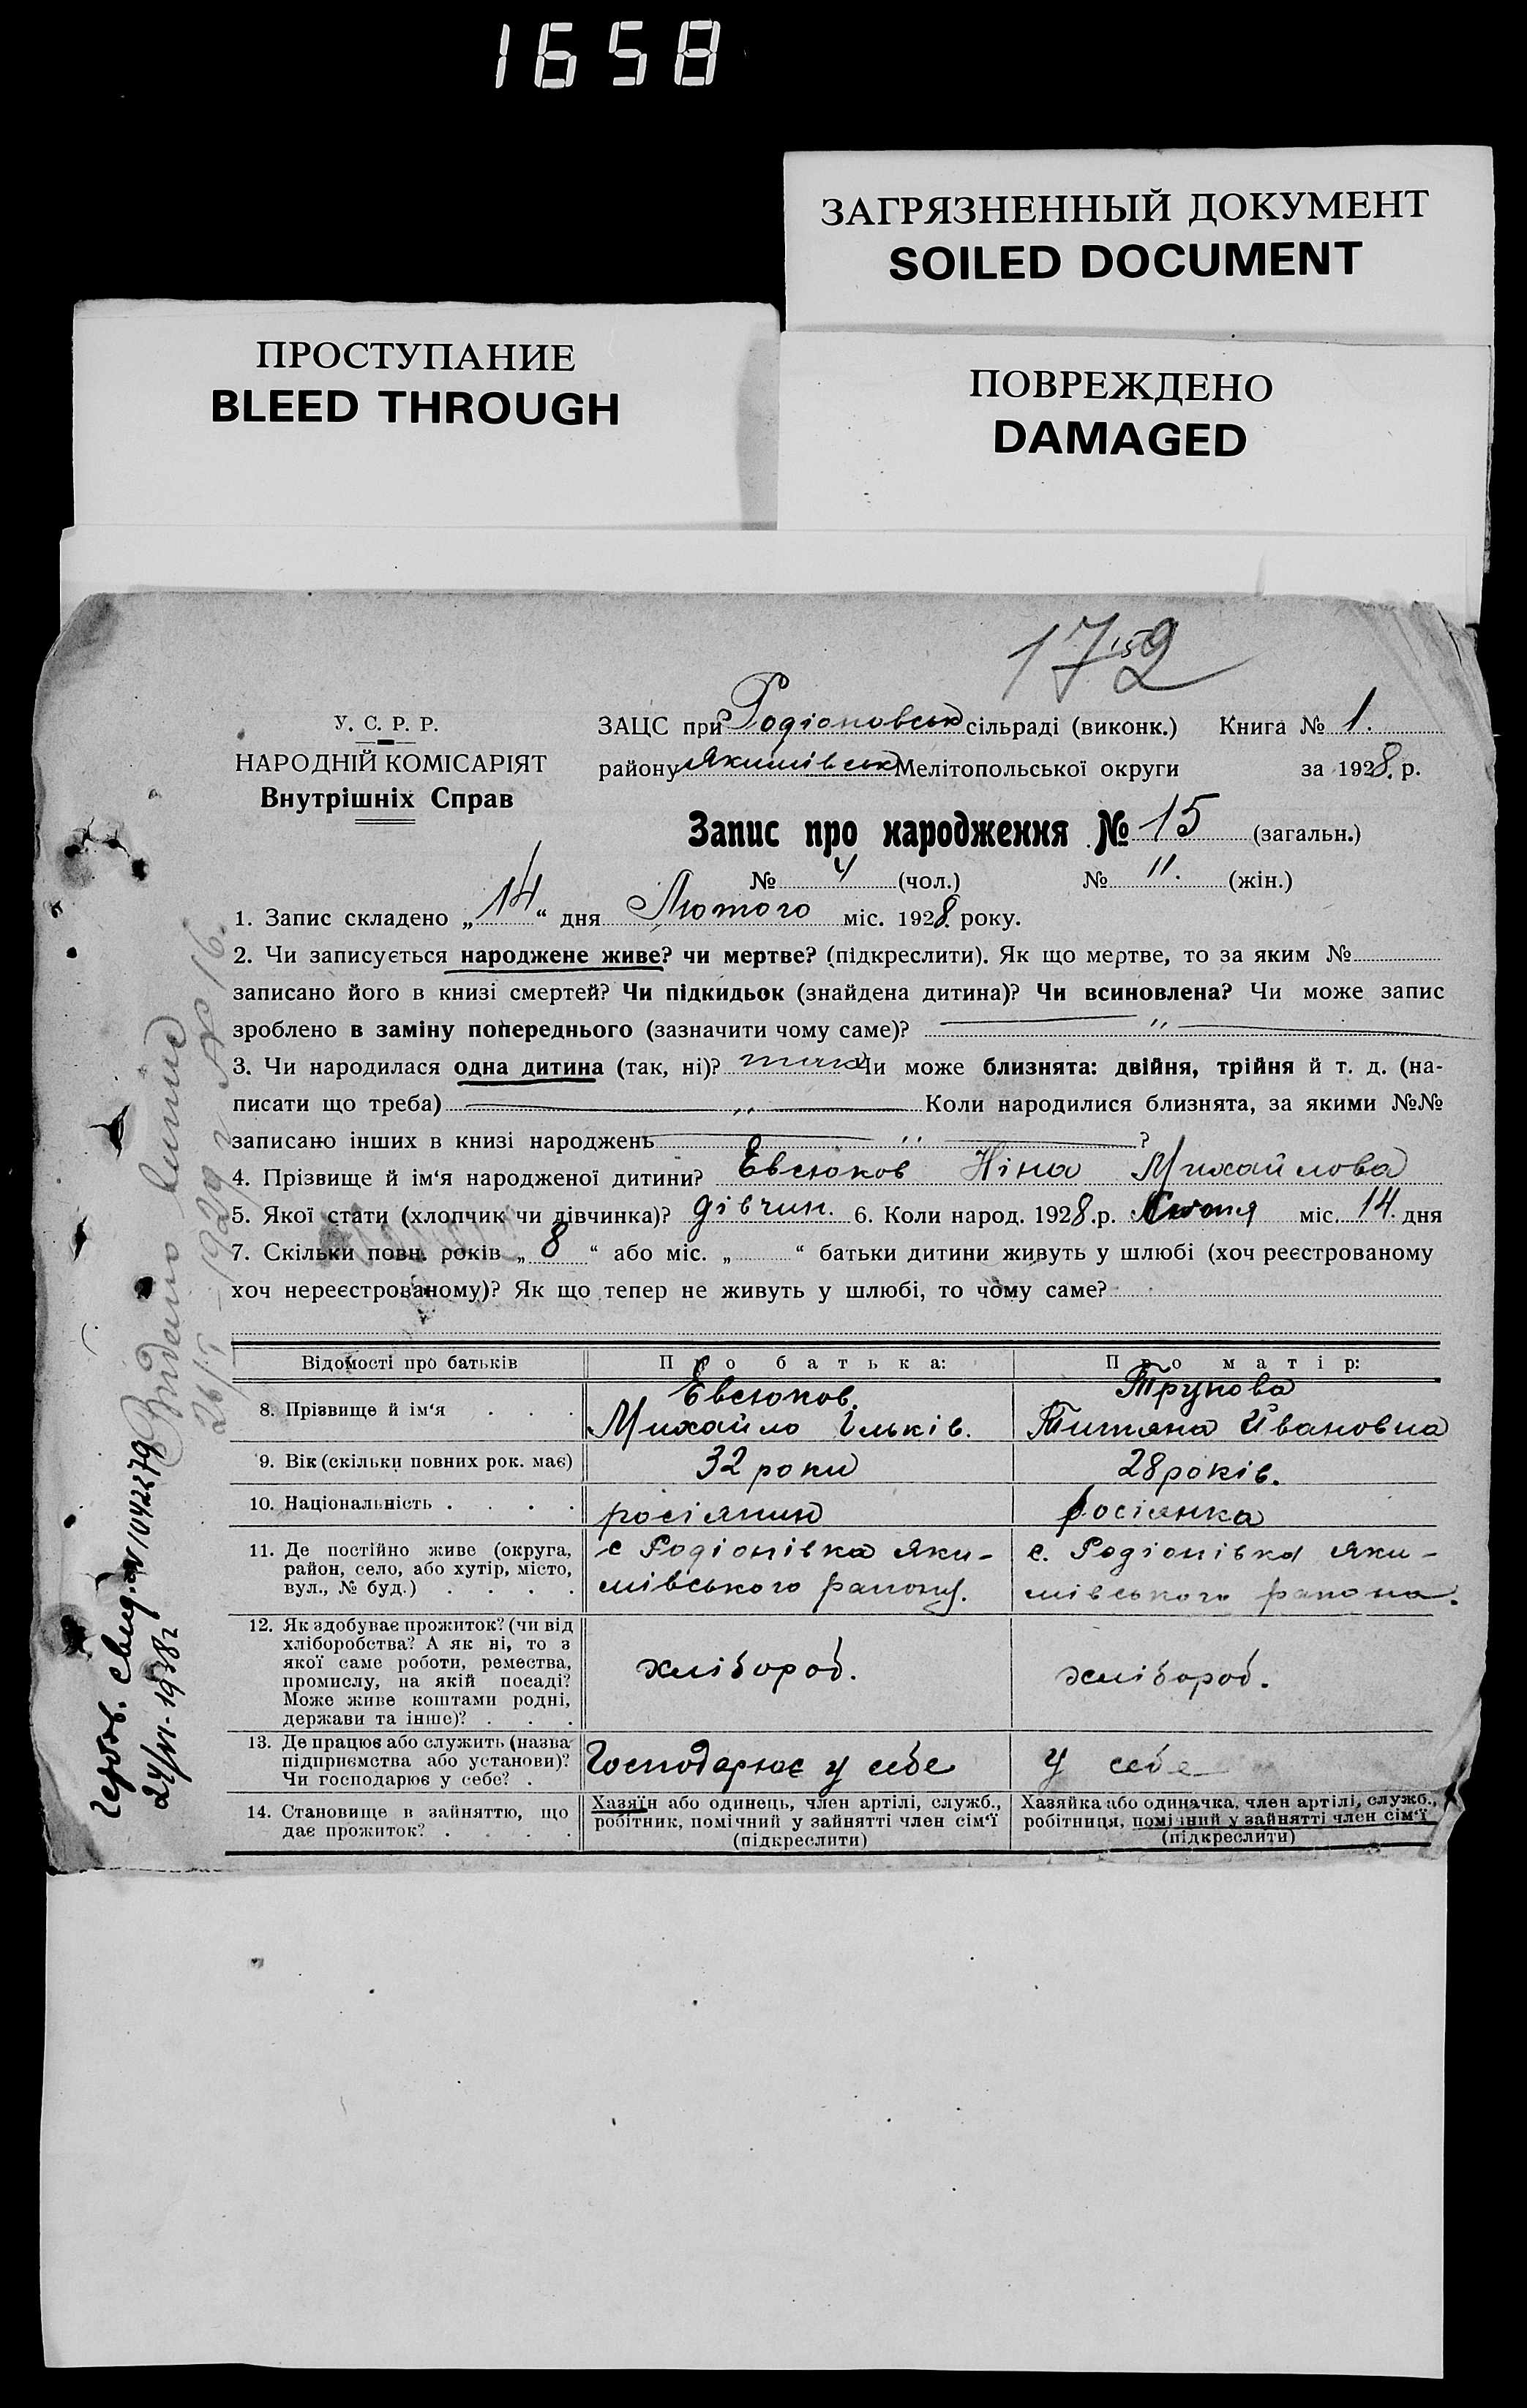 1658
ЗАГРЯЗНЕННЫЙ ДОКУМЕНТ
SOILED DOCUMENT
ПРОСТУПАНИЕ
BLEED THROUGH
ПОВРЕЖДЕНО
DAMAGED
У. С. Р. Р.
НАРОДНІЙ КОМІСАРІЯТ
Внутрішніх Справ
ЗАЦС при Родіоновськ сільраді (виконк.) Книга № 1.
району Якимівськ Мелітопольської округи за 1928. р.
Запис про народження № 15 (загальн.)
№ 4 (чол.) № 11. (жін.)
1. Запис складено „14“ дня Лютого міс. 1928. року.
2. Чи записується народжене живе? чи мертве? (підкреслити). Як що мертве, то за яким №
записано його в книзі смертей? Чи підкидьок (знайдена дитина)? Чи всиновлена? Чи може запис
зроблено в заміну попереднього (зазначити чому саме)? — „ —
3. Чи народилася одна дитина (так, ні)? так Чи може близнята: двійня, трійня й т. д. (на-
писати що треба) — „ — Коли народилися близнята, за якими №№
записано інших в книзі народжень — „ — ?
4. Прізвище й ім‘я народженої дитини? Евсюков Ніна Михайлова
5. Якої стати (хлопчик чи дівчинка)? дівчин. 6. Коли народ. 1928.р. міс. 14. дня
7. Скільки повн. років „8“ або міс. „ “ батьки дитини живуть у шлюбі (хоч реєстрованому
хоч нереєстрованому)? Як що тепер не живуть у шлюбі, то чому саме?
Відомості про батьків Про батька: Про матір:
8. Прізвище й ім‘я . . . Евсюков. Михайло Ільків. Трунова Титяна Івановна
9. Вік (скільки повних рок. має) 32 роки 28 років.
10. Національність . . . . росіянин росіянка
11. Де постійно живе (округа, район, село, або хутір, місто, вул., № буд.) . . . . с Родіонівка Яки-мівського району. с. Родіонівка Яки-мівського района.
12. Як здобуває прожиток? (чи від хліборобства? А як ні, то з якої саме роботи, ремества, промислу, на якій посаді? Може живе коштами родні, держави та інше)? . . . хлібороб. хлібороб.
13. Де працює або служить (назва підприємства або установи)? Чи господарює у себе? . Господарює у себе у себе
14. Становище в зайняттю, що дає прожиток? . . . . Хазяїн або одинець, член артілі, служб., робітник, помічний у зайнятті член сім‘ї (підкреслити) Хазяйка або одиначка, член артілі, служб., робітниця, помічний у зайнятті член сім‘ї (підкреслити)
свид. № 1042279
24/VI-1938 г